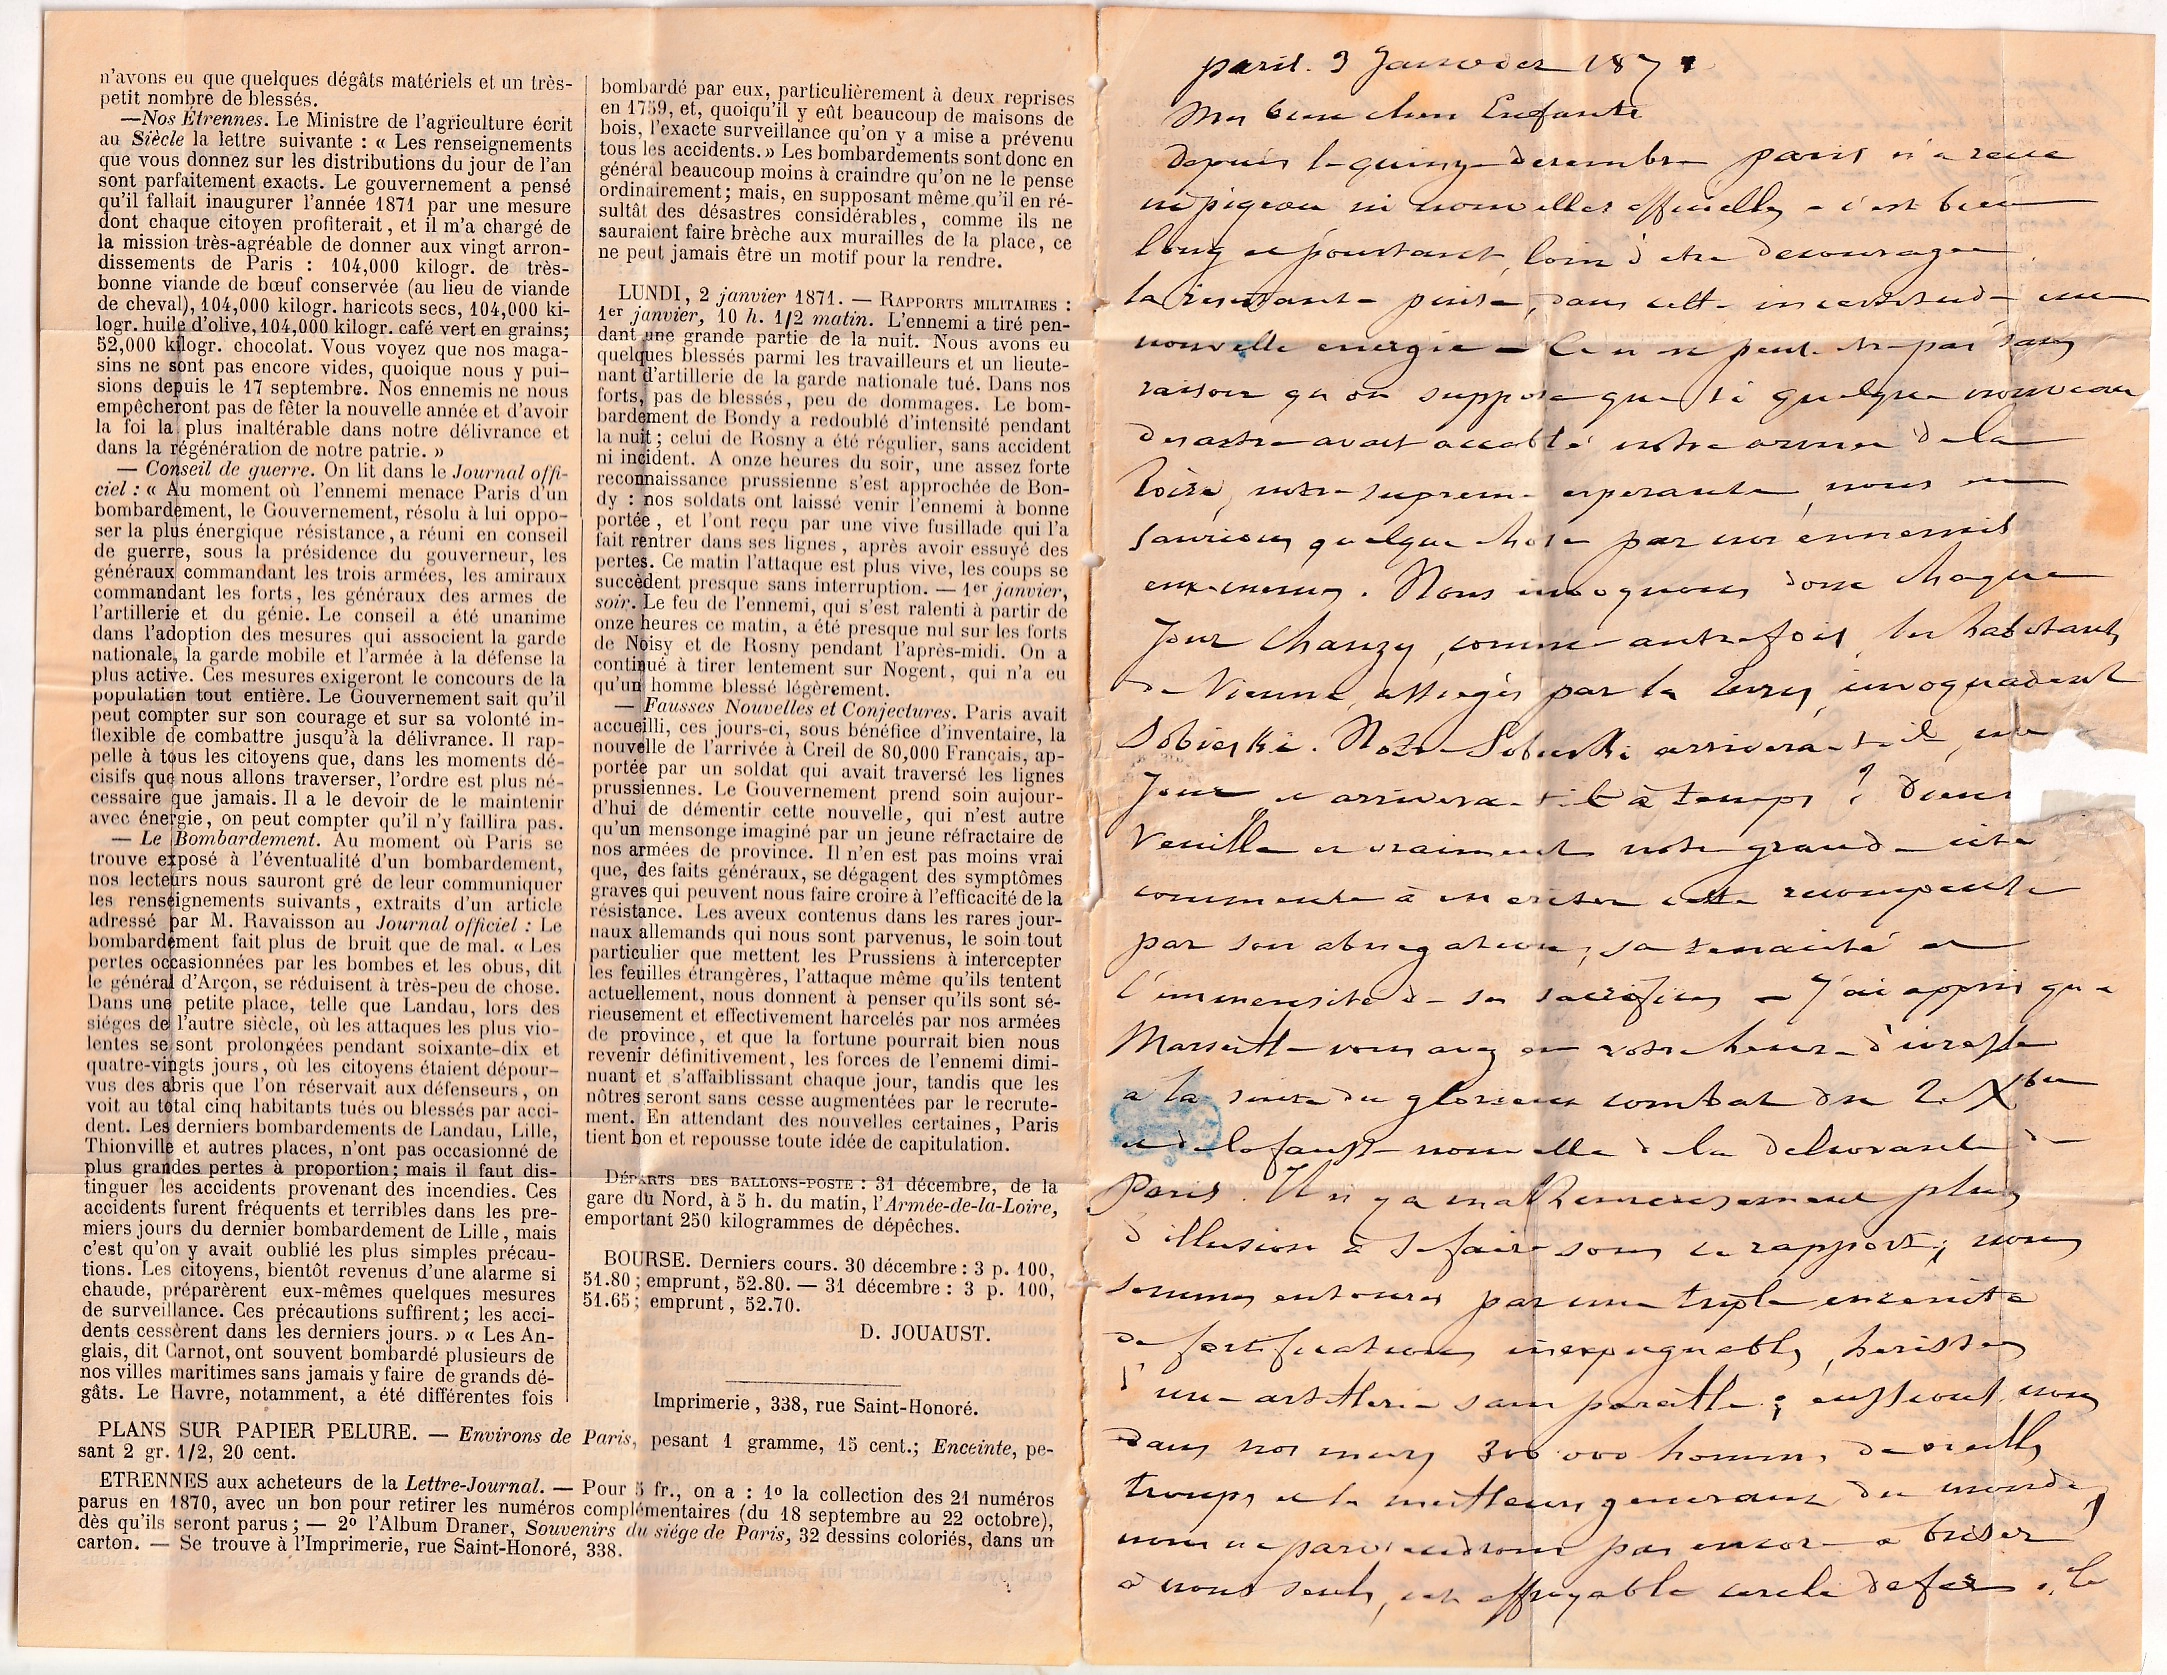 n'avons eu que quelques dégâts matériels et un très-
petit nombre de blessés.
—Nos Étrennes. Le Ministre de l'agriculture écrit
au Siècle la lettre suivante : « Les renseignements
que vous donnez sur les distributions du jour de l'an
sont parfaitement exacts. Le gouvernement a pensé
qu'il fallait inaugurer l'année 1871 par une mesure
dont chaque citoyen profiterait, et il m'a chargé de
la mission très-agréable de donner aux vingt arron-
dissements de Paris : 104,000 kilogr. de très-
bonne viande de bœuf conservée (au lieu de viande
de cheval), 104,000 kilogr. haricots secs, 104,000 ki-
logr. huile d'olive, 104,000 kilogr. café vert en grains;
52,000 kilogr. chocolat. Vous voyez que nos maga-
sins ne sont pas encore vides, quoique nous y pui-
sions depuis le 17 septembre. Nos ennemis ne nous
empêcheront pas de fêter la nouvelle année et d'avoir
la foi la plus inaltérable dans notre délivrance et
dans la régénération de notre patrie. »
— Conseil de guerre. On lit dans le Journal offi-
ciel : « Au moment où l'ennemi menace Paris d'un
bombardement, le Gouvernement, résolu à lui oppo-
ser la plus énergique résistance, a réuni en conseil
de guerre, sous la présidence du gouverneur, les
généraux commandant les trois armées, les amiraux
commandant les forts, les généraux des armes de
l'artillerie et du génie. Le conseil a été unanime
dans l'adoption des mesures qui associent la garde
nationale, la garde mobile et l'armée à la défense la
plus active. Ces mesures exigeront le concours de la
population tout entière. Le Gouvernement sait qu'il
peut compter sur son courage et sur sa volonté in-
flexible de combattre jusqu'à la délivrance. Il rap-
pelle à tous les citoyens que, dans les moments dé-
cisifs que nous allons traverser, l'ordre est plus né-
cessaire que jamais. Il a le devoir de le maintenir
avec énergie, on peut compter qu'il n'y faillira pas.
— Le Bombardement. Au moment où Paris se
trouve exposé à l'éventualité d'un bombardement,
nos lecteurs nous sauront gré de leur communiquer
les renseignements suivants, extraits d'un article
adressé par M. Ravaisson au Journal officiel : Le
bombardement fait plus de bruit que de mal. « Les
pertes occasionnées par les bombes et les obus, dit
le général d'Arçon, se réduisent à très-peu de chose.
Dans une petite place, telle que Landau, lors des
siéges de l'autre siècle, où les attaques les plus vio-
lentes se sont prolongées pendant soixante-dix et
quatre-vingts jours, où les citoyens étaient dépour-
vus des abris que l'on réservait aux défenseurs, on
voit au total cinq habitants tués ou blessés par acci-
dent. Les derniers bombardements de Landau, Lille,
Thionville et autres places, n'ont pas occasionné de
plus grandes pertes à proportion; mais il faut dis-
tinguer les accidents provenant des incendies. Ces
accidents furent fréquents et terribles dans les pre-
miers jours du dernier bombardement de Lille, mais
c'est qu'on y avait oublié les plus simples précau-
tions. Les citoyens, bientôt revenus d'une alarme si
chaude, préparèrent eux-mêmes quelques mesures
de surveillance. Ces précautions suffirent; les acci-
dents cessèrent dans les derniers jours. » « Les An-
glais, dit Carnot, ont souvent bombardé plusieurs de
nos villes maritimes sans jamais y faire de grands dé-
gâts. Le Havre, notamment, a été différentes fois
bombardé par eux, particulièrement à deux reprises
en 1759, et, quoiqu'il y eût beaucoup de maisons de
bois, l'exacte surveillance qu'on y a mise a prévenu
tous les accidents. » Les bombardements sont donc en
général beaucoup moins à craindre qu'on ne le pense
ordinairement; mais, en supposant même qu'il en ré-
sultât des désastres considérables, comme ils ne
sauraient faire brèche aux murailles de la place, ce
ne peut jamais être un motif pour la rendre.
LUNDI, 2 janvier 1871. — RAPPORTS MILITAIRES :
1er janvier, 10 h. 1/2 matin. L'ennemi a tiré pen-
dant une grande partie de la nuit. Nous avons eu
quelques blessés parmi les travailleurs et un lieute-
nant d'artillerie de la garde nationale tué. Dans nos
forts, pas de blessés, peu de dommages. Le bom-
bardement de Bondy a redoublé d'intensité pendant
la nuit; celui de Rosny a été régulier, sans accident
ni incident. A onze heures du soir, une assez forte
reconnaissance prussienne s'est approchée de Bon-
dy : nos soldats ont laissé venir l'ennemi à bonne
portée, et l'ont reçu par une vive fusillade qui l'a
fait rentrer dans ses lignes, après avoir essuyé des
pertes. Ce matin l'attaque est plus vive, les coups se
succèdent presque sans interruption. — 1er janvier,
soir. Le feu de l'ennemi, qui s'est ralenti à partir de
onze heures ce matin, a été presque nul sur les forts
de Noisy et de Rosny pendant l'après-midi. On a
continué à tirer lentement sur Nogent, qui n'a eu
qu'un homme blessé légèrement.
— Fausses Nouvelles et Conjectures. Paris avait
accueilli, ces jours-ci, sous bénéfice d'inventaire, la
nouvelle de l'arrivée à Creil de 80,000 Français, ap-
portée par un soldat qui avait traversé les lignes
prussiennes. Le Gouvernement prend soin aujour-
d'hui de démentir cette nouvelle, qui n'est autre
qu'un mensonge imaginé par un jeune réfractaire de
nos armées de province. Il n'en est pas moins vrai
que, des faits généraux, se dégagent des symptômes
graves qui peuvent nous faire croire à l'efficacité de la
résistance. Les aveux contenus dans les rares jour-
naux allemands qui nous sont parvenus, le soin tout
particulier que mettent les Prussiens à intercepter
les feuilles étrangères, l'attaque même qu'ils tentent
actuellement, nous donnent à penser qu'ils sont sé-
rieusement et effectivement harcelés par nos armées
de province, et que la fortune pourrait bien nous
revenir définitivement, les forces de l'ennemi dimi-
nuant et s'affaiblissant chaque jour, tandis que les
nôtres seront sans cesse augmentées par le recrute-
ment. En attendant des nouvelles certaines, Paris
tient bon et repousse toute idée de capitulation.
DÉPARTS DES BALLONS-POSTE : 31 décembre, de la
gare du Nord, à 5 h. du matin, l'Armée-de-la-Loire,
emportant 250 kilogrammes de dépêches.
BOURSE. Derniers cours. 30 décembre : 3 p. 100,
51.80 ; emprunt, 52.80. — 31 décembre : 3 p. 100,
51.65 ; emprunt, 52.70.
D. JOUAUST.
Imprimerie, 338, rue Saint-Honoré.
PLANS SUR PAPIER PELURE. — Environs de Paris, pesant 1 gramme, 15 cent.; Enceinte, pe-
sant 2 gr. 1/2, 20 cent.
ETRENNES aux acheteurs de la Lettre-Journal. — Pour 5 fr., on a : 1o la collection des 21 numéros
parus en 1870, avec un bon pour retirer les numéros complémentaires (du 18 septembre au 22 octobre),
dès qu'ils seront parus; — 2o l'Album Draner, Souvenirs du siége de Paris, 32 dessins coloriés, dans un
carton. — Se trouve à l'Imprimerie, rue Saint-Honoré, 338.
paris. 3 Janvier 1871
Mes bien chers Enfants
depuis le quinze decembre paris n'a recu
ni pigeon ni nouvelles officielles - c'est bien
long et pourtant, loin d'etre decouragée
la resistante puise, dans cette incertitude une
nouvelle energie - Ce n'est peut etre pas sans
raison qu'on suppose que si quelque nouveau
desastre avait accablé notre armée de la
loire, notre supreme esperance, nous en
saurions quelque chose par nos ennemis
eux-memes. Nous invoquons donc chaque
jour Chanzy, comme autrefois les habitants
de Vienne, assiegés par les turcs, invoquaient
Sobieski. Notre Sobieski arrivera-t-il, un
jour et arrivera-t-il à temps ? dieu
veuille et vraiment notre grande cité
commence à meriter cette recompense
par son abnegation, sa tenacité et
l'immensité de ses sacrifices - J'ai appris qu'a
Marseille vous avez eu votre heure d'ivresse
a la suite du glorieux combat du 2 Xbre
et de la fausse nouvelle de la delivrance de
Paris. Il n'y a malheureusement plus
d'illusion à se faire sous ce rapport; nous
sommes entourés par une triple enceinte
de fortifications inexpugnables, herissées
d'une artillerie sans pareille; eussions nous
dans nos murs 300 000 hommes de vieilles
troupes et les meilleurs generaux du monde,
nous ne parviendrions pas encore a briser
à nous seuls, cet effroyable cercle de fer. Le